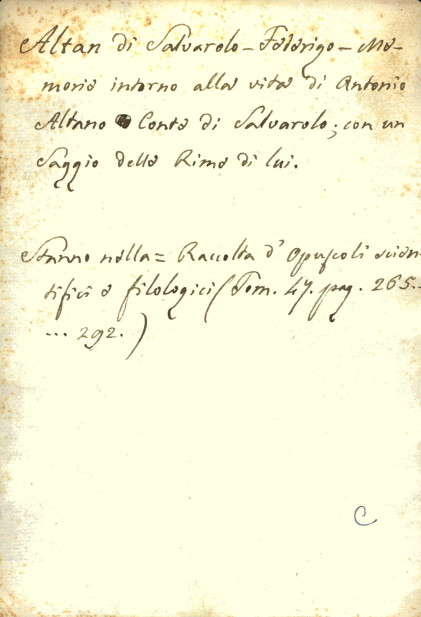 Altan di Salvarolo - Federigo - Me-
morie intorno alla vita di Antonio
Altano Conte di Salvarolo; con un
Saggio delle Rime di lui.
Stanno nella = Raccolta d' Opuscoli scien-
tifici e filologici (Tom. 47. pag. 265..
... 292.)
C